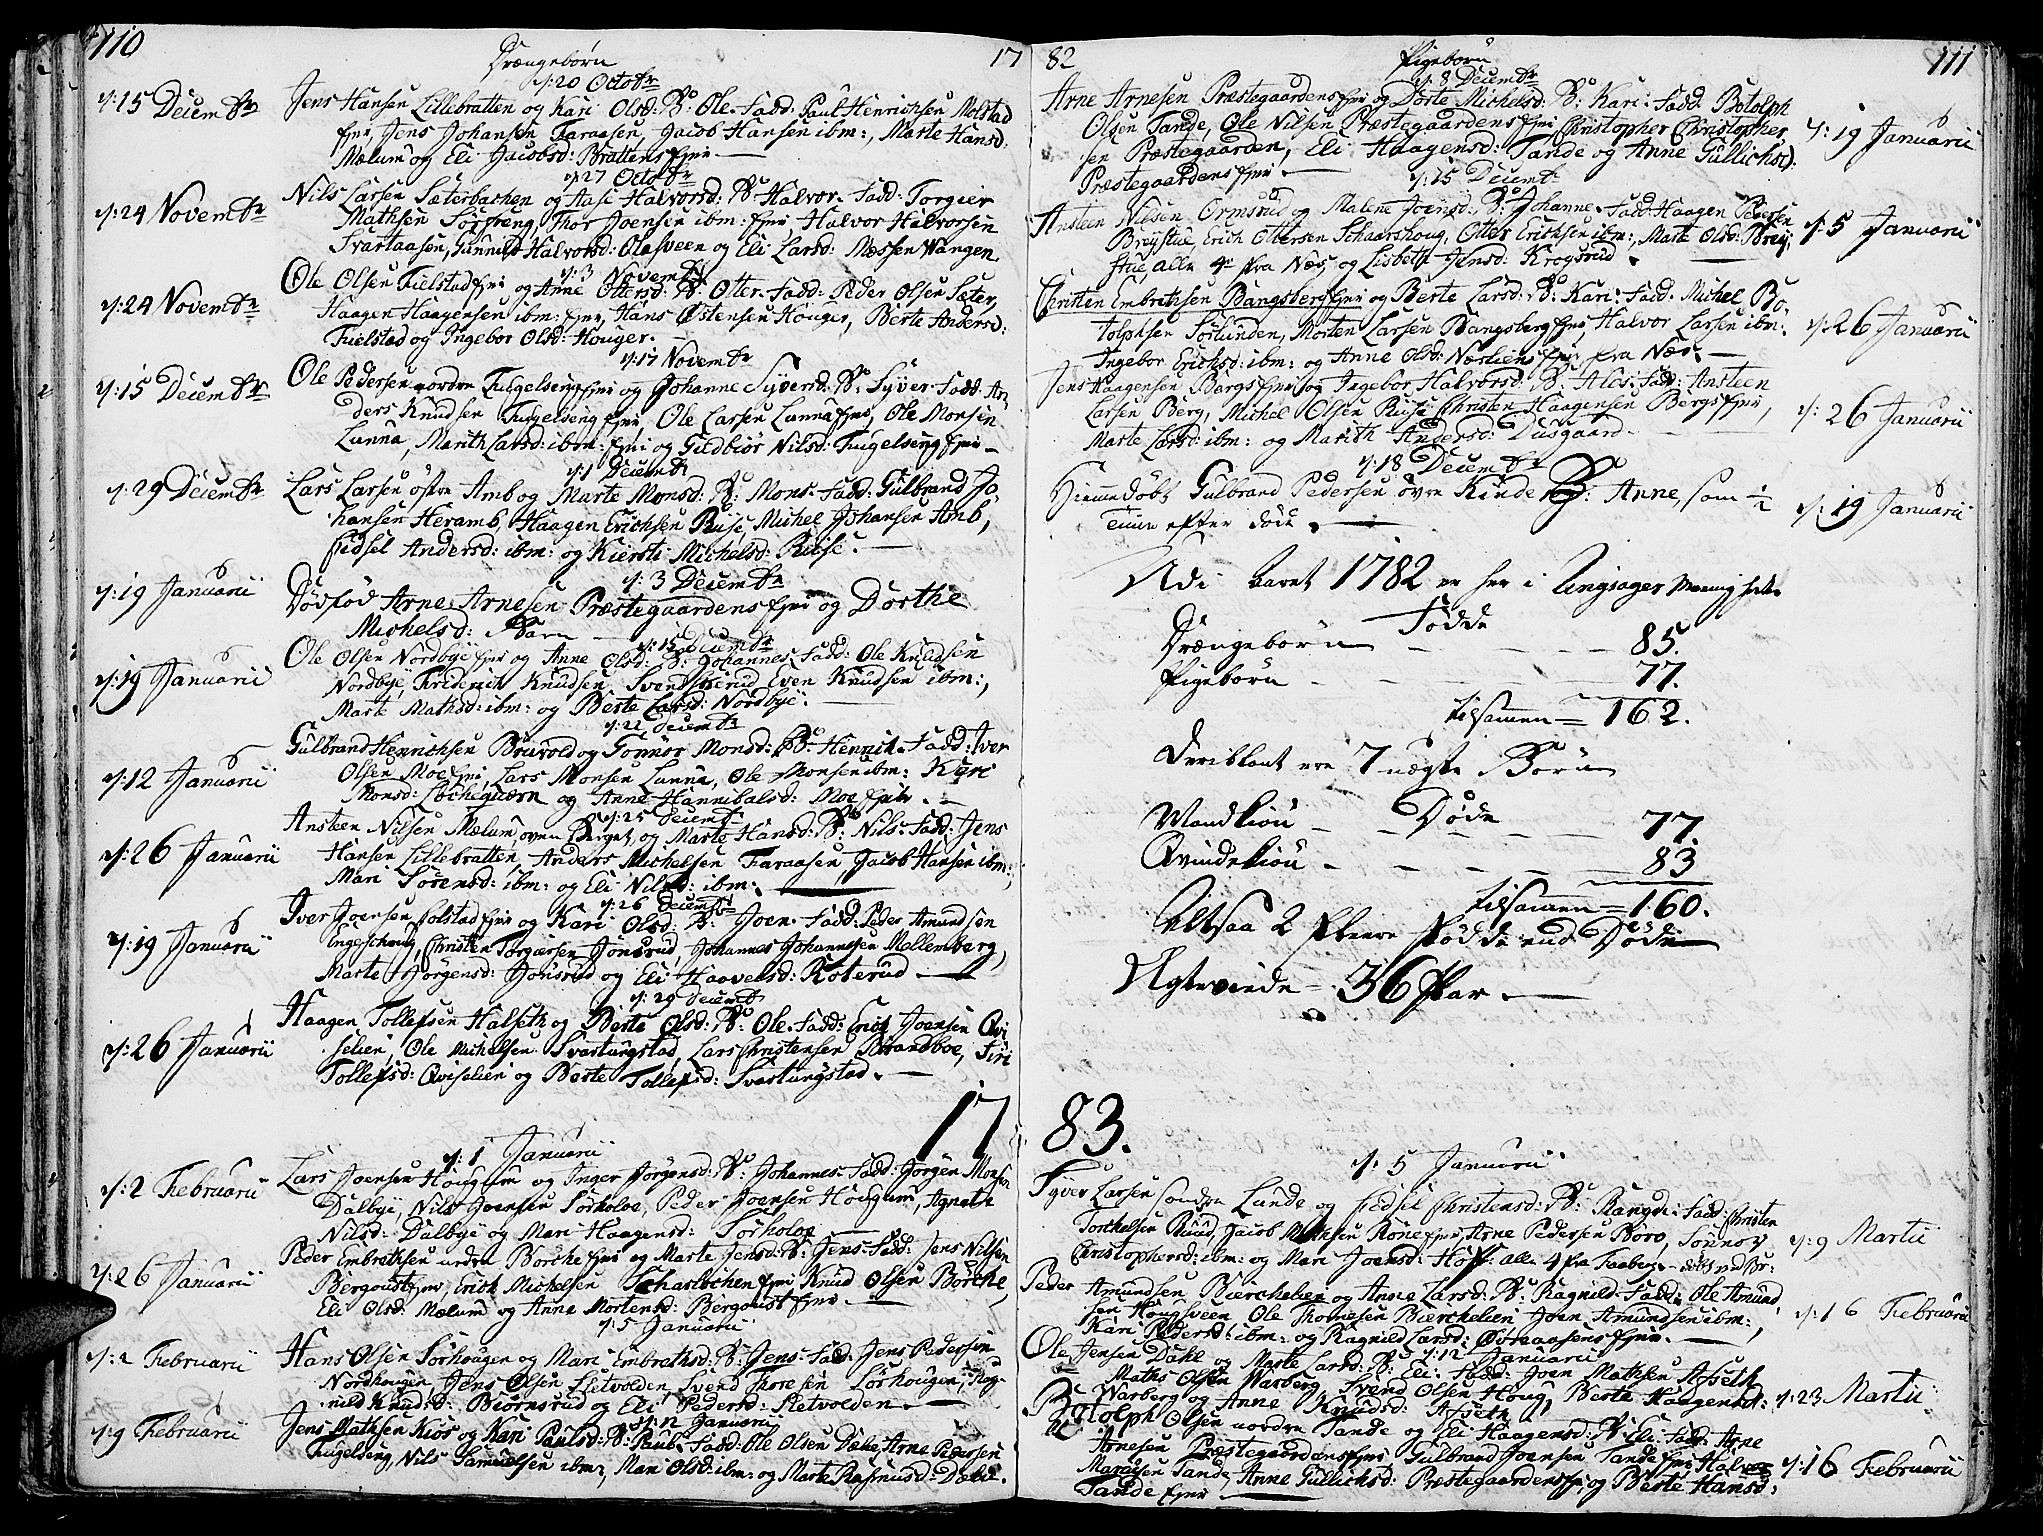 110
Drængebørn
17
d: 20 Octobr
d: 15 Decembr Jens Hansen Lillebratten og Kari Olsd: B: Ole. Fadd: Paul Henrichsen Molstad
Ejer, Jens Johansen Faraasen, Jacob Hansen ibm:, Marte Hansd:
Mælum og Eli Jacobsd: Brattens Ejer.
d: 27 Octobr
d: 24 Novembr Nils Larsen Sæterbachen og Aase Halvorsd: B: Halvor. Fadd: Torgier
Mathsen Sørpreng, Thor Joensen ibm: Ejer, Halvor Halvorsen
Svartaasen, Gunnild Halvorsd: Olasveen og Eli Larsd: Messen Wangen
d: 3 Novembr
d: 24 Novembr Ole Olsen Fielstad Ejer og Anne Ottersd: B: Otter. Fadd: Peder Olsen Sæter,
Haagen Haagensen ibm: Ejer, Hans Østensen Houger, Berte Andersd:
Fielstad og Ingebor Olsd: Houger.
d: 17 Novembr
d: 15 Decembr Ole Pedersen nordre Fugelseng Ejer og Johanne Syversd: B: Syver. Fadd: An
ders Knudsen Fugelseng Ejer, Ole Larsen Lunna Ejer, Ole Monsen
Lunna, Marith Larsd: ibm: Ejer og Gudbiør Nilsd: Fugelseng Ejer
d: 1 Decembr
d: 29 Decembr Lars Larsen østre Amb og Marte Monsd: B: Mons. Fadd: Gulbrand Jo
hansen Heramb, Haagen Erichsen Ruse, Michel Johansen Amb,
Sidsel Andersd: ibm: og Kiersti Michelsd: Ruse.
d: 3 Decembr
d: 19 Januarii Dødfød Arne Arnesen Præstegaardens Ejer og Dorthe
Michelsd: Barn
d: 15 Decembr
d: 19 Januarii Ole Olsen Nordbye Ejer og Anne Olsd: B: Johannes. Fadd: Ole Knudsen
Nordbye, Friderich Knudsen Svendsterud, Even Knudsen ibm:,
Marte Mathsd: ibm: og Berte Larsd: Nordbye.
d: 22 Decembr
d: 12 Januarii Gulbrand Henrichsen Bruvold og Gonnor Monsd: B: Henrich. Fadd: Iver
Olsen Moe Ejer, Lars Monsen Lunna, Ole Monsen ibm: Kari
Monsd: Løcheqværn og Anne Hannibalsd: Moe Ejer.
d: 25 Decembr
d: 26 Januarii Ansteen Nilsen Mælum oven Berget og Marte Hansd: B: Nils. Fadd: Jens
Hansen Lillebratten, Anders Michelsen Faraasen, Jacob Hansen ibm:,
Mari Sørensd: ibm: og Eli Nilsd: ibm:
d: 26 Decembr
d: 19 Januarii Iver Joensen Solstad Ejer og Kari Olsd: B: Joen. Fadd: Peder Amundsen
Engeschoug, Christen Torgersen Jonsrud, Johannes Johannesen Mellemberg,
Marte Jørgensd: Jonsrud og Eli Haavelsd: Koterud
d: 29 Decembr
d: 26 Januarii Haagen Tollefsen Halseth og Berte Olsd: B: Ole. Fadd: Erich Joensen Qvi
selien, Ole Michelsen Svartungstad, Lars Christensen Brandboe, Siri
Tollefsd: Qviselien og Berte Tollefsd: Svartungstad.
17
d: 1 Januarii
d: 2 Februarii Lars Joensen Hougum og Inger Jørgensd: B: Johannes. Fadd: Jørgen Monsen
Dalbye, Nils Joensen Sørholoe, Peder Joensen Hougum, Agnete
Nilsd: Dalbye og Mari Haagensd: Sørholoe
d: 26 Januarii Peder Embrethsen nedre Børche Ejer og Marte Jensd: B: Jens. Fadd: Jens Nilsen
Bergoust Ejer, Erich Michelsen Scharlochen Ejer Knud Olsen Børche,
Eli Olsd: Mælum og Anne Mortensd: Bergoust Ejer.
d: 5 Januarii
d: 2 Februarii Hans Olsen Sørhougen og Mari Embrethsd: B: Jens. Fadd: Jens Pedersen
Nordhougen, Jens Olsen Sletvolden, Svend Thoresen Sørhougen, Rag
nild Knudsd: Biørnsrud og Eli Pedersd: Sletvolden.
d: 12 Januarii
d: 9 Februarii Jens Mathsen Kios og Kari Paulsd: B: Paul. Fadd: Ole Olsen Dæhe, Arne Pedersen
Fugelseng, Nils Samuelsen ibm:, Mari Olsd: ibm: og Marte Rasmusd: Dæhl.
82
Pigebørn
111
d: 8 Decembr
Arne Arnesen Præstegaardens Ejer og Dorte Michelsd: B: Kari. Fadd: Botolph
Olsen Tande, Ole Nilsen Præstegaardens Ejer, Christopher Christopher
sen Præstegaarden, Eli Haagensd: Tande og Anne Gullichsd: d: 19 Januarii
Præstegaardens Ejer.
d: 15 Decembr
Ansteen Nilsen Ormsrud og Malene Joensd: B: Johanne. Fadd: Haagen Pedersen
Brøystue, Erich Ottersen Schaarshoug, Otter Erichsen ibm:, Marte Olsd: Brøy d: 5 Januarii
stue, alle 4 fra Næs, og Lisbeth Jensd: Krogsrud.
Christen Embrethsen Bangsberg Ejer og Berte Larsd: B: Kari. Fadd: Michel Bo
tolphsen Sørlunden, Morten Larsen Bangsberg Ejer, Halvor Larsen ibm: d: 26 Januarii
Ingebor Erichsd: ibm: og Anne Olsd: Næsliens Ejer fra Næs.
Jens Haagensen Bergs Ejer og Ingebor Halvorsd: B: Ales. Fadd: Ansteen
Larsen Berg, Michel Olsen Ruse, Christen Haagensen Bergs Ejer, d: 26 Januarii
Marte Larsd: ibm: og Marith Andersd: Dusgaard.
d: 18 Decembr
Hiemmedøbt Gulbrand Pedersen øvre Kinde B: Anne, som ½ d: 19 Januarii
Time efter døde.
Udi Aaret 1782 er her i Ringsager Menighed
Fødde
Drængebørn — 85.
Pigebørn — 77.
tilsamen = 162.
Deriblant ere 7 uægte Børn
Døde
Mandkiøn — 77.
Qvindekiøn — 83
tilsamen = 160.
Altsaa 2 fleere fødde end Døde
Ægteviede — 36 Par.
83.
d: 5 Januarii
Syver Larsen søndre Lunde og Sidsel Christensd: B: Rangdi. Fadd: Christen
Torchelsen Ruud, Jacob Mathisen Røne Ejer, Arne Pedersen Boro, Sønnov d: 9 Martii
Christophersd: ibm: og Mari Joensd: Hoff: alle 4 fra Faaberg
Peder Amundsen Bierchelien og Anne Larsd: B: Ragnild. Fadd: Ole Amund
sen Hougsveen Ole Thomesen Bierchelien Joen Amundsen ibm:, d: 16 Februarii
Kari Pedersd: ibm: og Ragnild Larsd: Øvreaasens Ejer.
d: 12 Januarii
Ole Jensen Dahl og Marte Larsd: B: Eli. Fadd: Joen Mathsen Afseth
Maths Olsen Warberg, Svend Olsen Houg, Berte Haagensd: d: 23 Martii
Warberg og Anne Knudsd: Afseth
Botolph Olsen nordre Tande og Eli Haagensd: B: Eli. Fadd: Arne
Arnesen Præstegaardens Ejer, Gulbrand Joensen Tande Ejer, Halvor d: 16 Februarii
Tande, Anne Gullichsd: Præstegaardens Ejer og Berte Hansd:
Tande Ejer